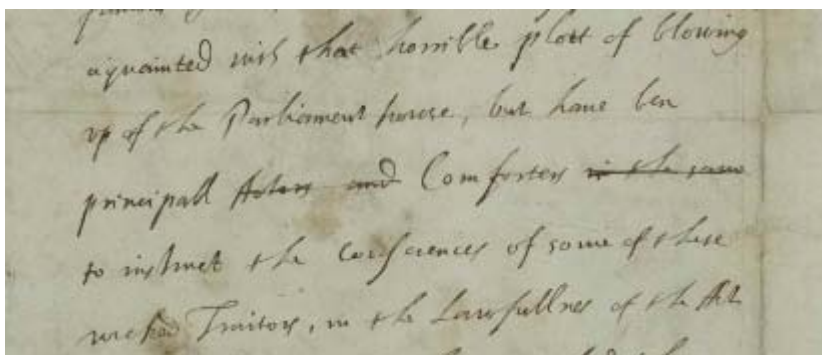 aquainted with that horrible plott of blowing
vp of the Parliament house, but have ben
principall Actors and Comforters in the same
to instruct the consciences of some of these
wicked Traitors, in the Lawfullnes of the Act